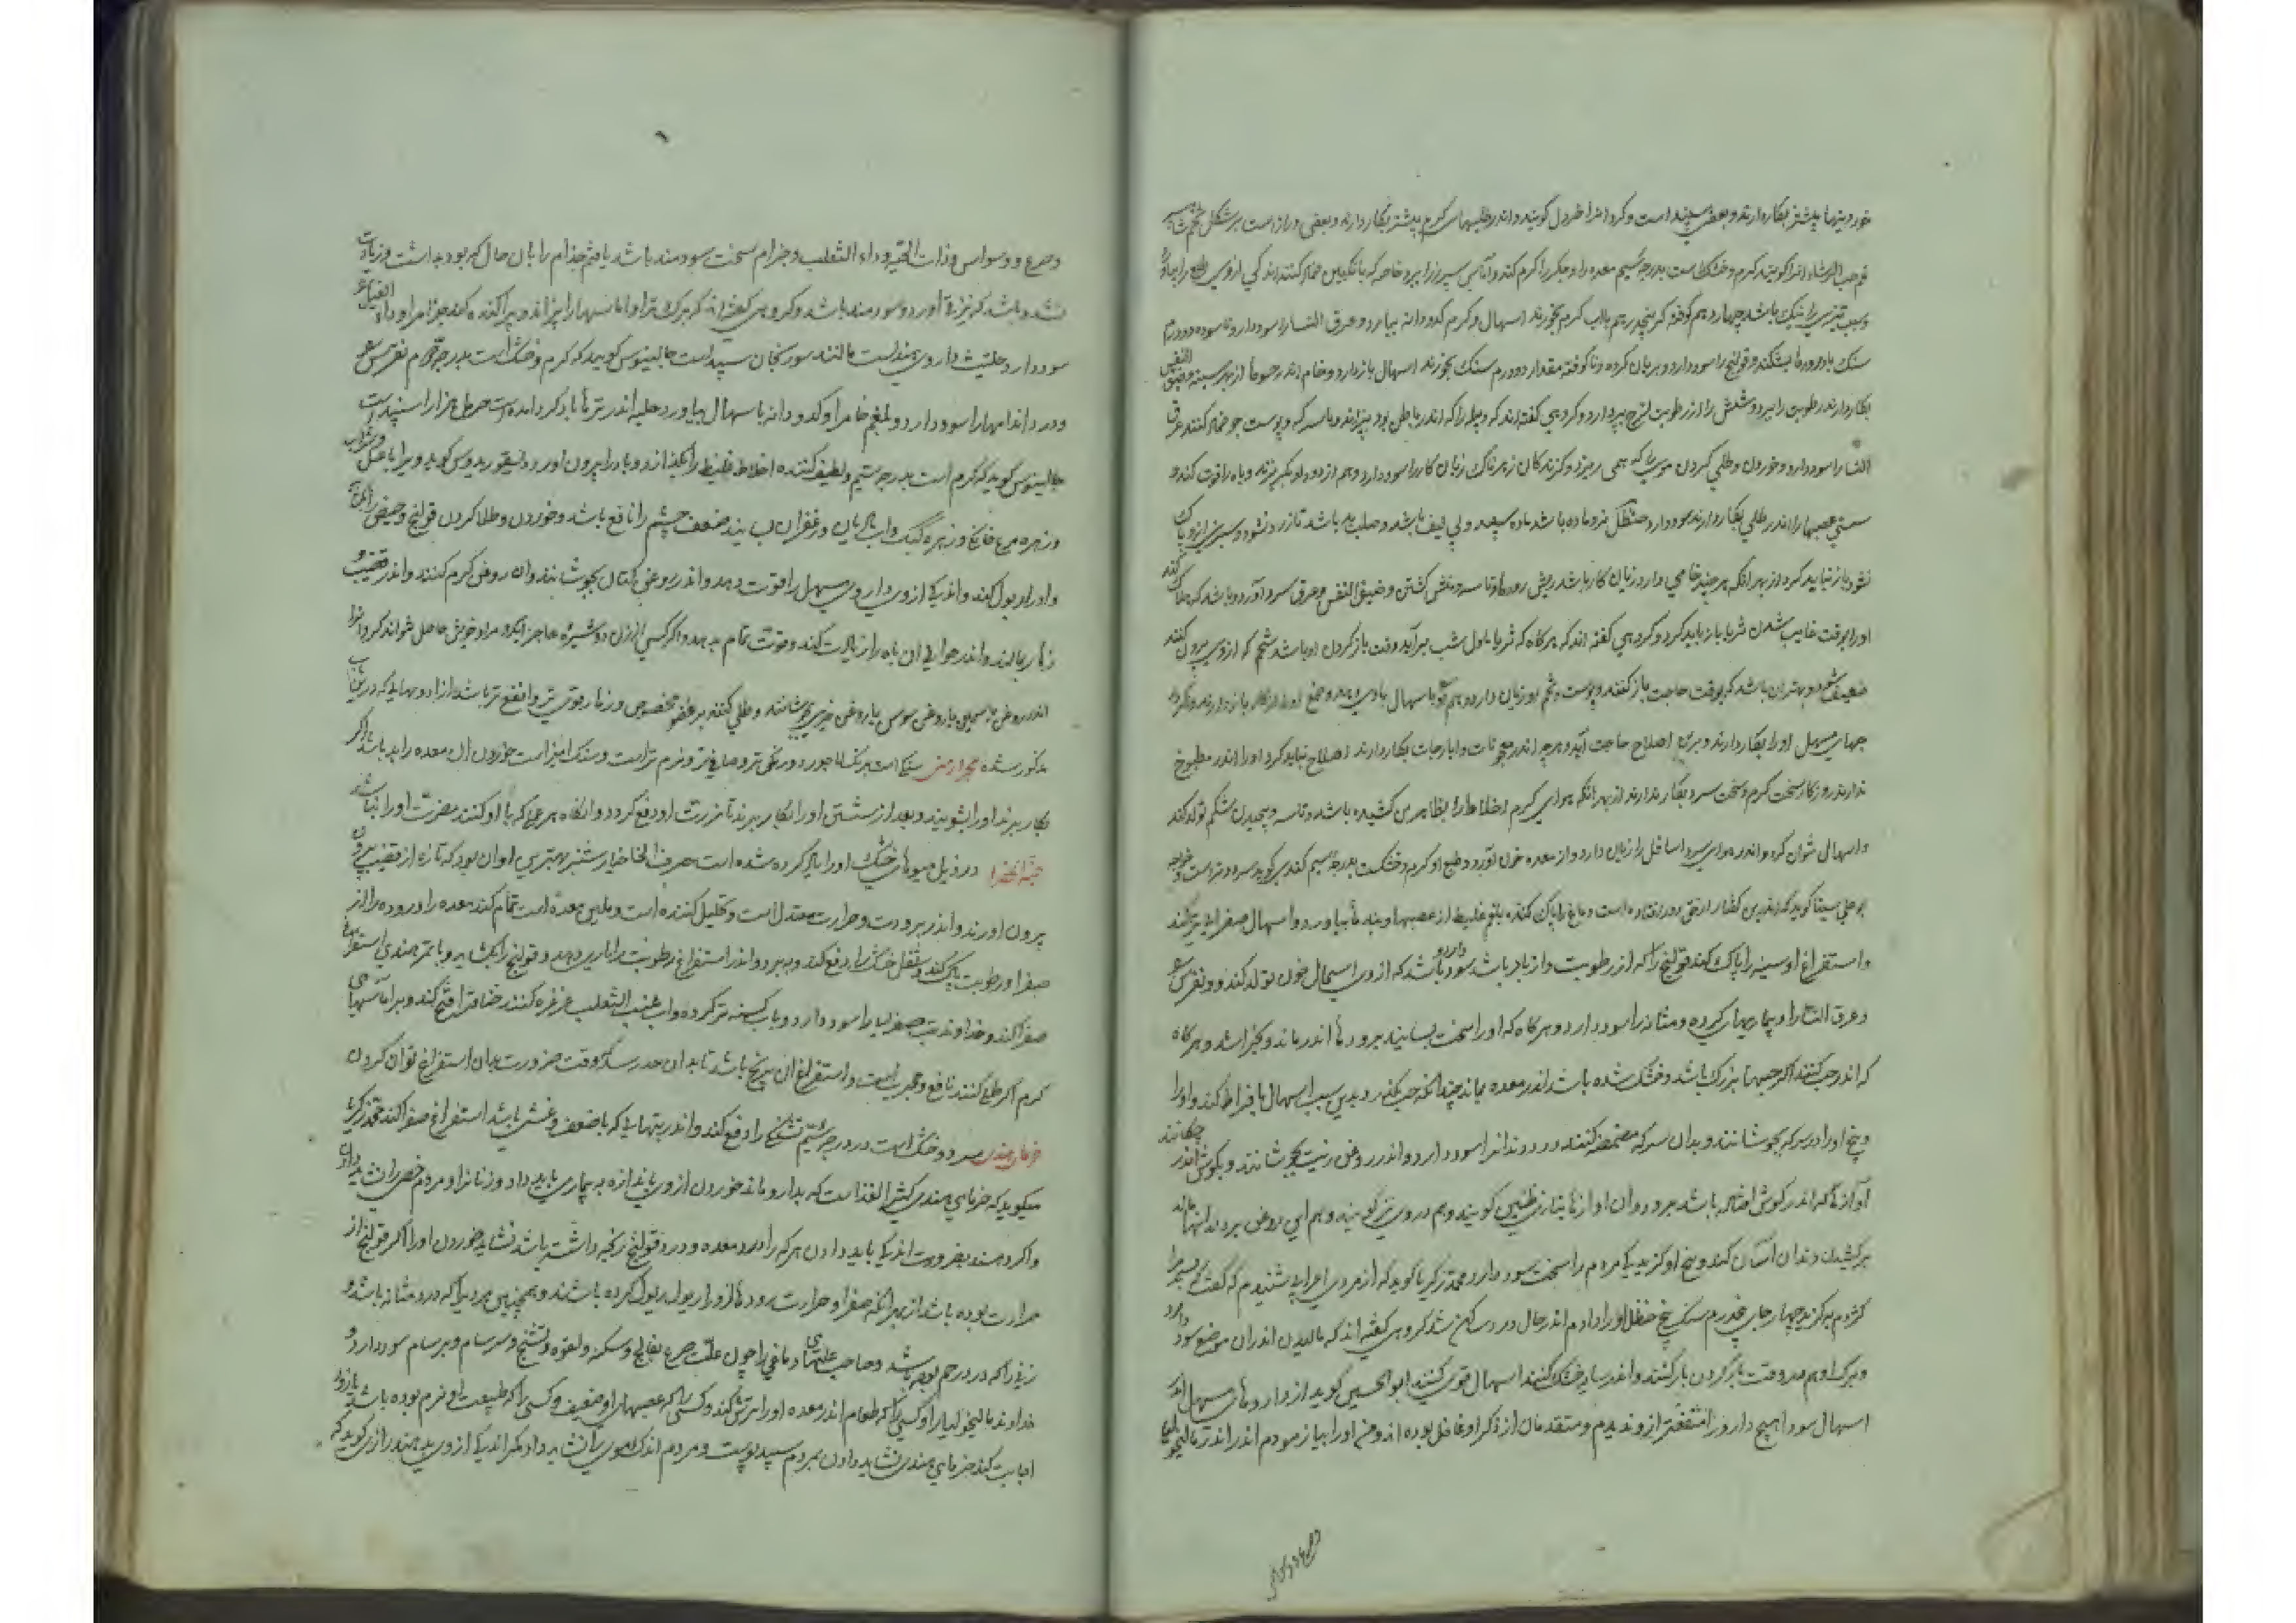 خوردنیها بیشتر بکار دارند و بعضی سپند است و کرد انرا خردل کویند و اندر طلیها سرکه بیشتر بکار دارند و بعضی دراز است بر شکل تخم
حب الرشاد انرا کویند کرم و خشکست بدرجه سیم معده را و جکر را کرم کند و آماس سپرز را ببرد خاصه که با انکبین ضماد کنند اندکی از وی طبع را
چهار درم کوفته کر پنجدرم بآب کرم بخورند اسهال و کرم کدودانه بیارد و عرق النسا را سود دارد و ناسوده دو درم
سنک بادرودها بشکند و قولنج را سود دارد و بریان کرده و ناکوفته مقدار دو درم سنک بخورند اسهال باز دارد و خام اندر از بهر سینه و ضیق النفس
بکار دارند رطوبت را ببرد و شش را از رطوبت لزج بپردازد و کروهی کفته اند که دبیله را که اندر باطن بود بپزاند و با سرکه و پوست جو ضماد کنند عرق
النسا را سود دارد و خوردن و طلی کردن موی را که همی ریزد و کزندکان زهرناک زیان کار را سود دارد و هم از دود او بکریزند و باه را قوت کند و
سستی عصبها را اندر طلی بکار دارند سود دارد حنظل نر و ماده باشد ماده سپید و بی لیف باشد و صلب بد باشد تا زرد نشود و سبزی از وی پاک
نشود باز نباید کرد از بهر آنکه هر چند خامی دارد زیان کار باشد و منش کشتن و ضیق النفس و عرق سرد آورد و باشد که هلاک کند
او را بوقت غایب شدن ثریا باز باید کرد و کروهی کفته اند که هر کاه که ثریا باول شب برآید وقت باز کردن او باشد شحم که از وی بیرون کنند
ضعیف شود و بهتر آن باشد که بوقت حاجت باز کنند و پوست و تخم او زیان دارد و هم قی و اسهال
جهای مسهل او را بکار دارند و برای اصلاح حاجت آید و هر چه اندر معجونات و ایارجات بکار دارند اصلاح نباید کرد او را اندر مطبوخ
ندارند روزکار سخت کرم و سخت سرد بکار ندارند از بهر آنکه هوای کرم اخلاط را بظاهر تن کشیده باشد و تاسه و پیچیدن شکم تولد کند
و اسهال نتوان کرد و اندر هوای سرد اسافل را زیان دارد و از معده خون آورد و طبع او کرم و خشکست بدرجه سیم کندی کوید سرد و تر است خواجه
بوعلی سینا کوید کندی بدین کفتار از حق دور افتاده است دماغ را پاک کند و بلغم غلیظ از عصبها و بندها بیاورد و اسهال صفرا نیز کند
و استفراغ او سینه را پاک کند قولنج را که از رطوبت و از باد باشد سود دارد و باشد که از وی اسهال خون تولد کند و نقرس
و عرق النسا را و بیماریهای کرده و مثانه را سود دارد و هر کاه که او را سخت بسایند برودها اندر ماند و بخراشد و هر کاه
که اندر حب کنند اکر حبها بزرک باشد و خشک شده باشد اندر معده بماند چندانکه حب بکدازد و بدین سبب اسهال بافراط کند و او را
و بیخ او را در سرکه بجوشانند و بدان سرکه مضمضه کنند درد دندانرا سود دارد و اندر روغن زیت بجوشانند و بکوش اندر چکانند
آوازها که اندر کوش افتاده باشد ببرد و آن آوازها بتازی طنین کویند و هم دوی نیز کویند و هم این روغن بر دندانها مالند
برکشیدن دندان آسان کند و بیخ او کزیدکی مردم را سخت سود دارد محمد زکریا کوید که از مردی اعرابی شنیدم که کفت
کژدم بکزید چهار جای یکدرم سنک بیخ حنظل او را دادم اندر حال درد ساکن شد کروهی کفته اند که مالیدن اندر آن موضع سود دارد
و برک او هم بدو وقت باز کردن باز کنند و اندر سایه خشک کنند اسهال قوی کنند ابوالحسن کوید از داروهای مسهل اندر
اسهال سودا هیچ دارو را با منفعت تر از وی ندیدم و متقدمان از ذکر او غافل بوده اند و من او را بیازمودم اندر مالیخولیا
۹
و صرع و وسواس و ذات الحیه و داء الثعلب و جذام سخت سودمند باشد یافتم جذام را بآن حال که بود بداشت و زیادت
نشد و باشد که نیز قی آورد و سودمند باشد و کروهی کفته اند که برک تر او آماسها را بپزاند و بپراکنده کند جذام را و داء الفیل را
سود دارد حلتیت داروی هندیست مانند سورنجان سپید است جالینوس کوید که کرم و خشک است بدرجه دوم نقرس
و درد اندامها را سود دارد و بلغم خام را و کدودانه باسهال بیاورد حلبه اندر ترها یاد کرده آمده است حرمل هزار اسپند است
جالینوس کوید که کرم است بدرجه سیم و لطیف کننده اخلاط غلیظ را بکدازد و باد را بیرون آورد دیسقوریدوس کوید ویرا با عسل و شراب
و زهره مرغ خانکی و زهره کبک و آب رازیانه و زعفران بسایند ضعف چشم را نافع باشد و خوردن و طلا کردن قولنج و حیض را
و ادرار بول کند و اندکی از وی داروی مسهل را قوت دهد و اندر روغن کتان بجوشانند و آن روغن کرم کنند و اندر قضیب و
زهار بمالند و اندر حوالی آن باه را زیادت کند و قوت تمام بدهد و اکر کسی از زن دوشیزه عاجز آید و مراد خویش حاصل نتواند کرد انرا
اندر روغن یاسمین یا روغن سوسن یا روغن خیری بجوشانند و طلی کنند بر عضو مخصوص و زهار قوی تر و انفع تر باشد از ادویهائیکه در بن باب
مذکور شده حجر ارمنی سنکی است برنک لاجورد و رنکین تر و صافی تر و نرم تر است و سنک آمیز است خوردن آن معده را بد باشد و اکر
بکار برند او را بشویند و بعد از شستن او را بکار برند تا مضرت او دفع کردد و آنکاه هر عمل که با او کنند مضرت او را نباشد
حبة الخضرا در ذیل میوهای خشک او را یاد کرده شده است حرف الخا خیار شنبر بهترین او آن بود که تازه از قضیب
بیرون آورند و اندر برودت و حرارت معتدل است و تحلیل کننده است و ملین معده است تمام کند معده را و روده را از
صفرا و رطوبت پاک کند و ثفل خشک را دفع کند و ببرد و اندر استفراغ رطوبت را یاری دهد و قولنج را بکشاید و با تمر هندی استفراغ
صفرا کند و خداوند تب صفرائی را سود دارد و بآب کسنه تر کرده و آب عنب الثعلب غرغره کنند خناق را فتح کند و بر آماسهای
کرم اکر طلی کنند نافع و مجرب است و استفراغ آن برنج باشد تا بدان حد رسد که وقت ضرورت بدان استفراغ توان کردن
خرمای هندی سرد و خشک است در درجه سیم تشنکی را دفع کند و اندر تبهائی که با ضعف و غشی باشد استفراغ صفرا کند محمد زکریا
میکوید که خرمای هندی کثیر الغذا است که بدارو ماند خوردن از وی باندازه بیماری باید داد و زنان را و مردم را نشاید داد
و اکر دهند بضرورت اندکی باید دادن هر که را درد معده و درد قولنج رنجه داشته باشد نشاید خوردن او را اکر قولنج از
حرارت بوده باشد از بهر آنکه صفرا و حرارت رودها از وی کرده باشند و همچنین مردیرا که درد مثانه باشد و
زنیرا که درد رحم بوده باشد و صاحب علتهای دماغی را چون علت صرع و فالج و سکته و لقوه و تشنج و سرسام و برسام سود دارد و
خداوند مالیخولیا را و کسی را که طعام اندر معده او را ترش کند و کسی را که عصبهای او ضعیف و کسی را که طبیعت او نرم بوده باشد
اجابت کند خرمای هندی نشاید دادن مردم سپید پوست و مردم اندک موی را نشاید داد مکر اندکی از وی بدهند رازی کوید که